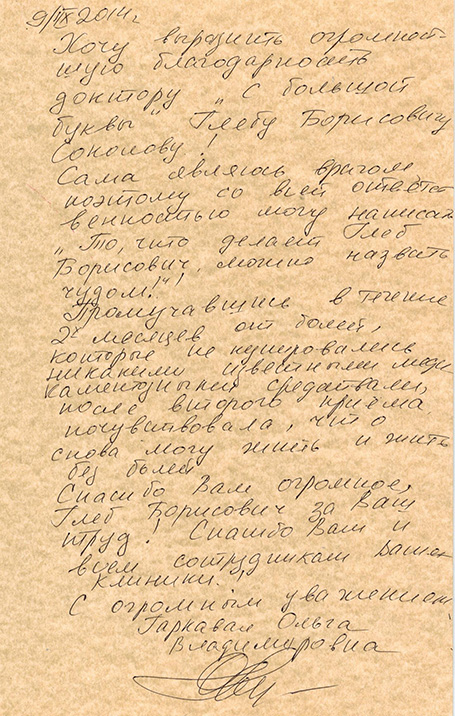 9/IX 2014г
Хочу выразить огромней-
шую благодарность
доктору „с большой
буквы" Глебу Борисовичу
Соколову!
Сама являюсь врачом
поэтому со всей ответст
венностью могу написать
„То, что делает Глеб
Борисович, можно назвать
чудом!"!
Промучавшись в течение
2х месяцев от болей,
которые не купировались
никакими известными меди
каментозными средствами,
после второго приёма
почувствовала, что
снова могу жить и жить
без болей
Спасибо Вам огромное,
Глеб Борисович за Ваш
труд! Спасибо Вам и
всем сотрудникам Вашей
клиники!
С огромным уважением
Гаркавая Ольга
Владимировна